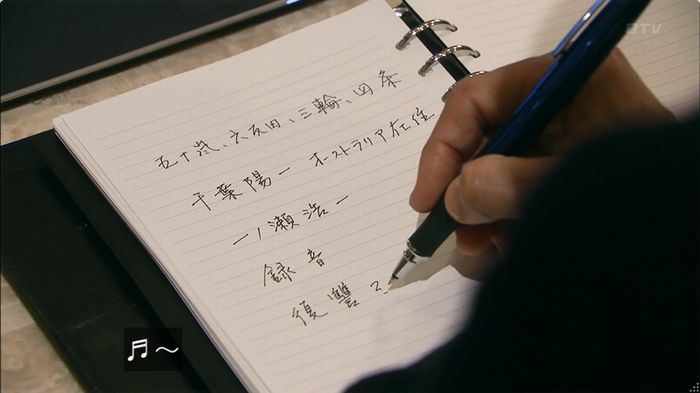 五十嵐、六反田、三輪、四条
千葉陽一 オーストラリア在住
一ノ瀬浩一
録音
復讐
♬～